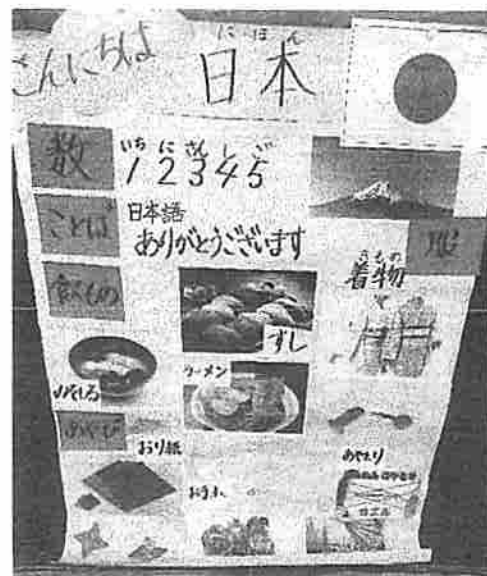 こんにちは
にほん
日本
数
いち に さん し ご
1 2 3 4 5
ことば
日本語
ありがとうございます
服
飲もの
きもの
着物
すし
みそしる
ラーメン
あそび
おり紙
あやとり